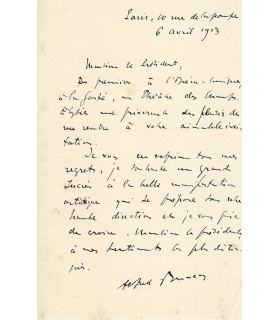 Paris, 10 rue de la pompe
6 avril 1913
Monsieur le Président,
Des premières à l'Opéra-Comique,
à la Gaîté, au Théâtre des Champs-
Élysées me priveront du plaisir de
me rendre à votre aimable invi-
tation.
Je vous en exprime tous mes
regrets, je souhaite un grand
succès à la belle manifestation
artistique qui se propose sous votre
haute direction et je vous prie
de croire, Monsieur le président,
à mes sentiments les plus distin-
gués.
Alfred Bruneau